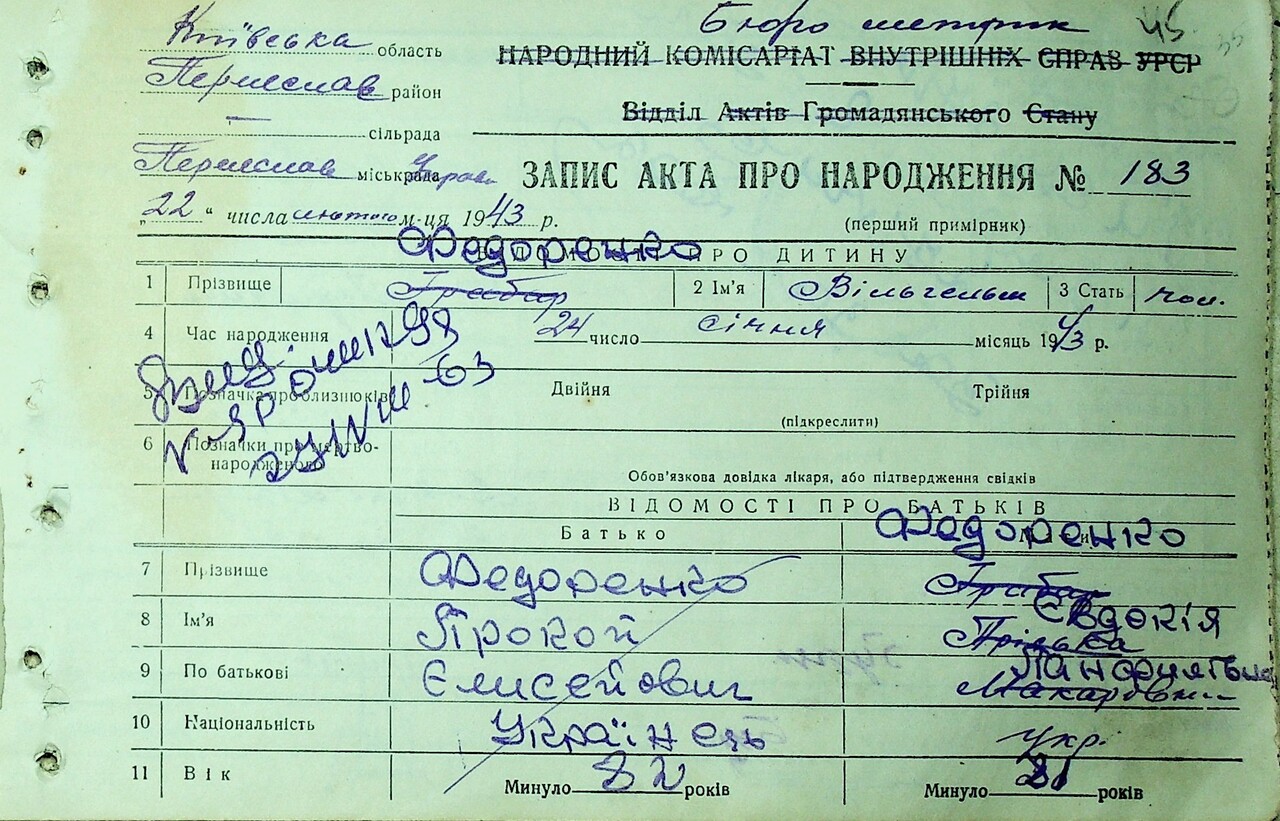 Київська область
Бюро метрик 45
НАРОДНИЙ КОМІСАРІАТ ВНУТРІШНІХ СПРАВ УРСР
Переяслав район
Відділ Актів Громадянського Стану
сільрада
Переяслав міськрада Управа
ЗАПИС АКТА ПРО НАРОДЖЕННЯ № 183
"22" числа лютого м-ця 1943 р.
(перший примірник)
Федоренко
ПРО ДИТИНУ
1 Прізвище Грабар 2 Ім'я Вільгельм 3 Стать чол.
4 Час народження 24 число січня місяць 1943 р.
5 Позначка про близнюків Двійня Трійня
(підкреслити)
6 Позначки про мертво-
народженого
Обов'язкова довідка лікаря, або підтвердження свідків
ВІДОМОСТІ ПРО БАТЬКІВ
Батько
Федоренко
7 Прізвище Федоренко Грабар
Євдокія
8 Ім'я Прокоп Пріська
9 По батькові Єлисейович Макаровна
10 Національність Українець укр.
11 Вік Минуло 32 років Минуло років